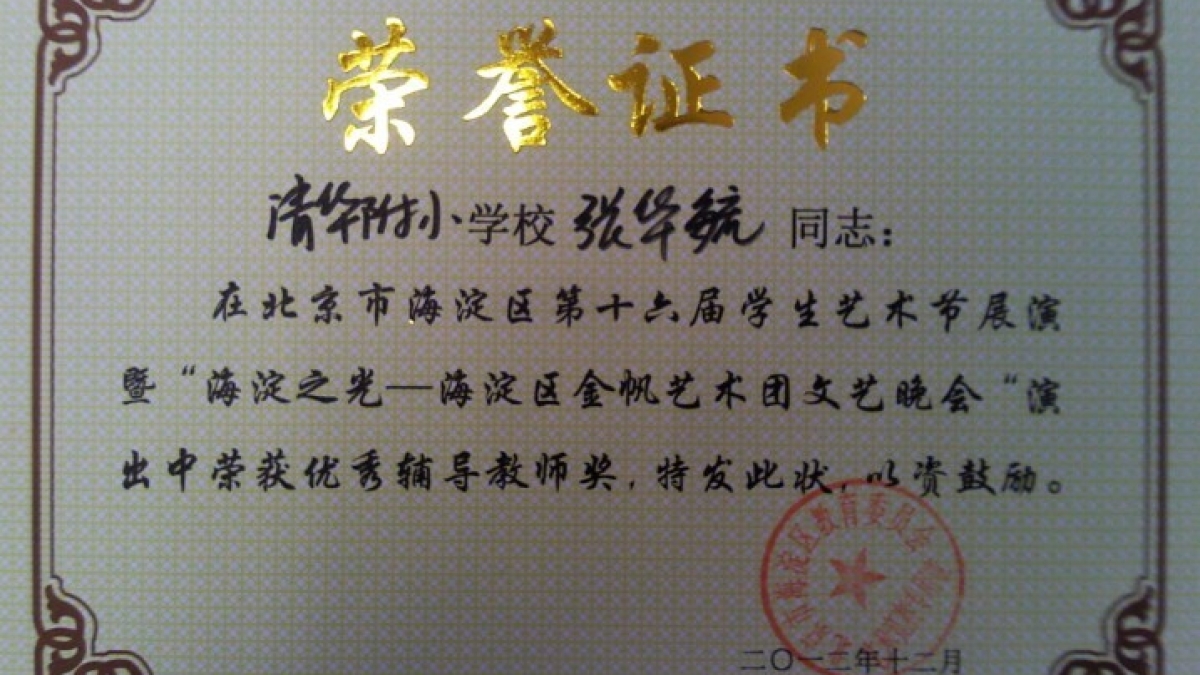 荣誉证书
清华附小学校 张华毓 同志：
在北京市海淀区第十六届学生艺术节展演
暨“海淀之光—海淀区金帆艺术团文艺晚会“演
出中荣获优秀辅导教师奖，特发此状，以资鼓励。
北京市海淀区教育委员会
二〇一二年十二月